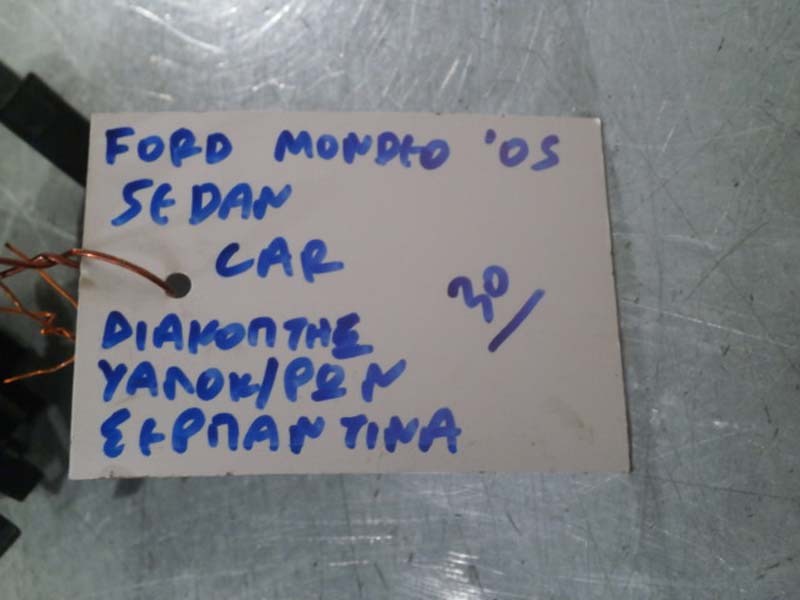 FORD MONDEO '05
SEDAN
CAR
30/
ΔΙΑΚΟΠΤΗΣ
ΥΑΛΟΚ/ΡΩΝ
ΣΕΡΠΑΝΤΙΝΑ